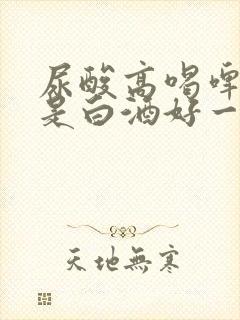 尿酸高喝啤
是白酒好一
天地無寒